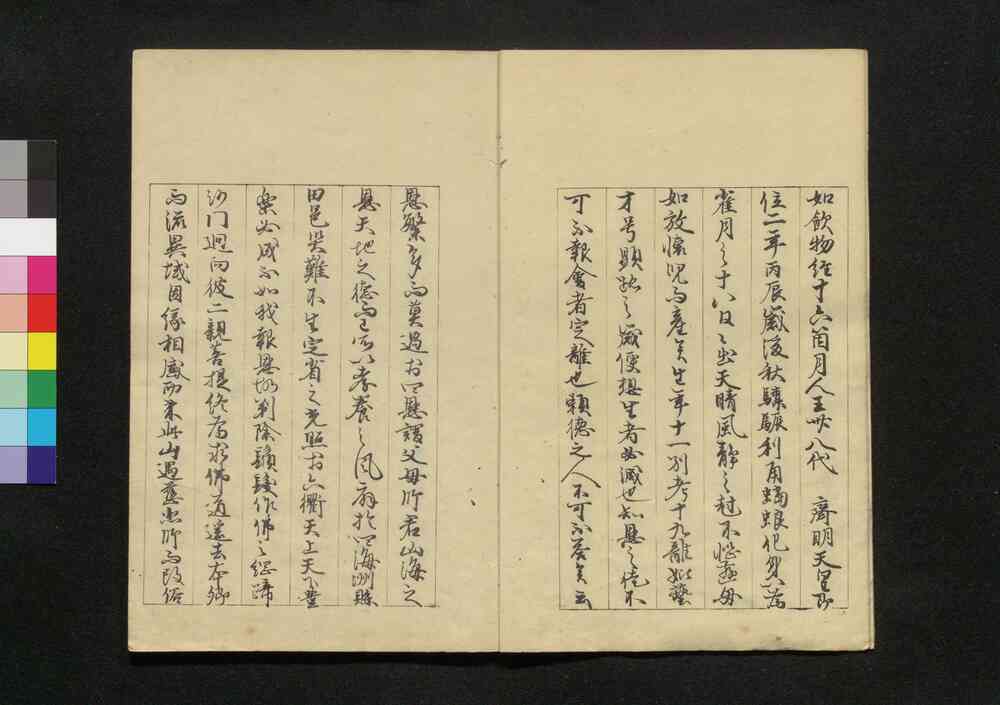 如飲物経十六箇月人王卅八代 齊明天皇即
位二年丙辰歳後秋驥驪利角蝎蜋化身為
雀月之十八日之出天晴風静之刻不悩慈母
如放懐児而産矣生年十一別考十九離妣藝
才号顕孤之歳便想生者必滅也知恩之徒不
可不報會者定離也頼徳之人不可不答矣云
恩繁多而莫過於四恩謂父母所君山海之
恩天地之徳而已所以孝養之風扇於四海洲縣
田邑災難不生定省之光照於六衢天上天下豊
樂必成不如我報恩故剃除鬚髪作佛之経蹄
沙門廻向彼二親菩提終為求佛道遥去本郷
而流異域因縁相感而来此山過